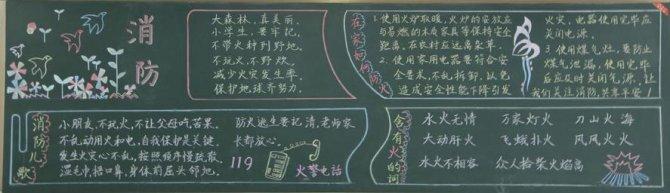 消防
大森林,真美丽,
小学生,要牢记,
不带火种到野地,
不玩火,不野炊,
减少火灾发生率,
保护地球齐努力。
在家如何防火
1.使用火炉取暖,火炉的安放应
与易燃的木质家具等保持安全
距离,在农村应远离柴草。
2.使用家用电器要符合安
全要求,不乱拆卸,以免
造成安全性能下降引发
火灾,电器使用完毕应
关闭电源。
3.使用煤气灶,要防止
煤气泄漏,使用完毕
后应及时关闭气源,让
我们关注消防,共享平安!
消防儿歌
小朋友,不玩火,不让父母吃苦果。
不乱动用火和电,自我保护是关键。
发生火灾心不乱,按照顺序慢疏散
湿毛巾捂口鼻,身体前屈头邻地。
防火逃生要记清,老师家
长都放心。
119
火警电话
含有火的词
水火无情 万家灯火 刀山火海
大动肝火 飞蛾扑火 风风火火
水火不相容 众人拾柴火焰高